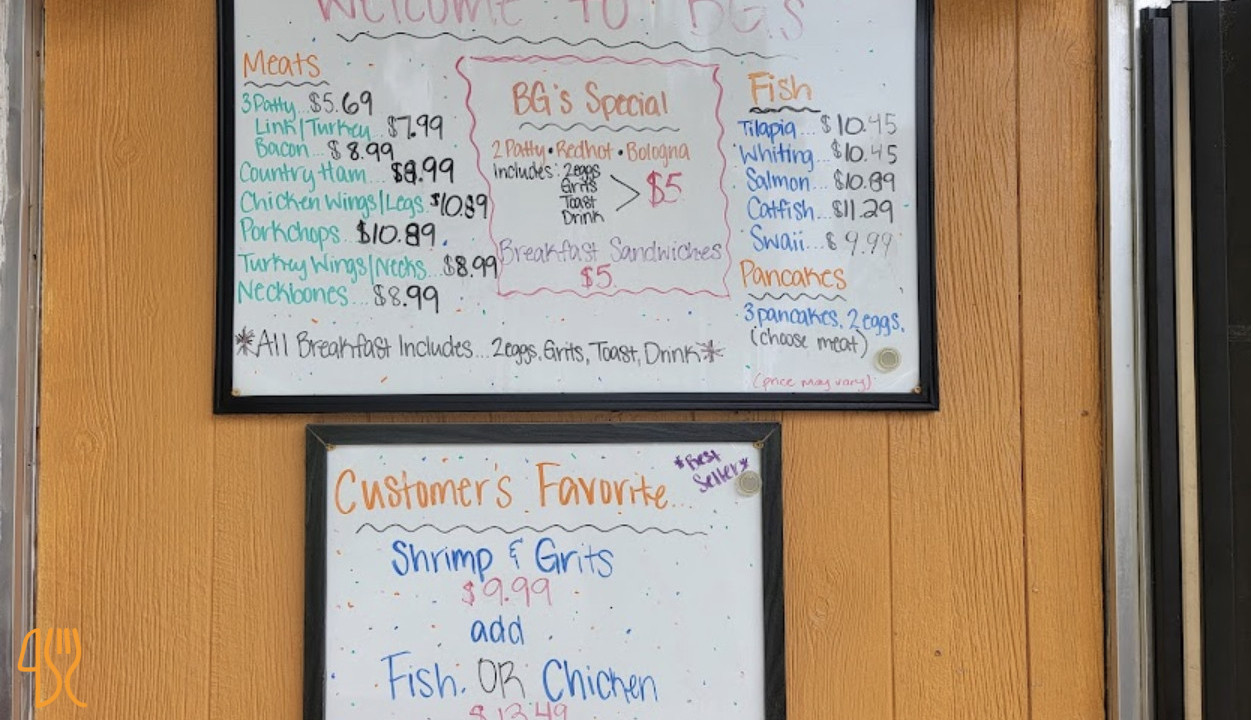 Welcome To BG's
Meats
3 Patty...$5.69
Link/Turkey...$7.99
Bacon...$8.99
Country Ham...$8.99
Chicken Wings/Legs.$10.89
Porkchops...$10.89
Turkey Wings/Necks...$8.99
Neckbones...$8.99
BG's Special
2 Patty • Redhot • Bologna
Includes: 2eggs
Grits
Toast
Drink
> $5
Breakfast Sandwiches
$5
Fish
Tilapia...$10.45
Whiting...$10.45
Salmon...$10.89
Catfish...$11.29
Swaii...$9.99
Pancakes
3 pancakes, 2 eggs,
(choose meat)
(price may vary)
*All Breakfast Includes...2eggs, Grits, Toast, Drink*
Customer's Favorite...
*Best
Seller*
Shrimp & Grits
$9.99
add
Fish. OR Chicken
$13.49